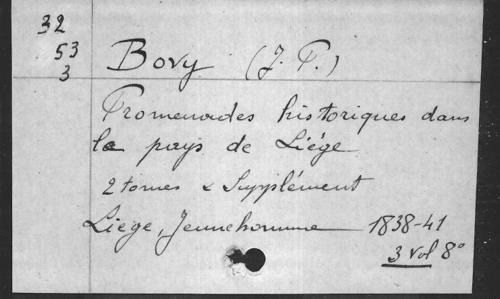 32
53
3
Bovy (J. P.)
Promenades historiques dans
le pays de Liége
2 tomes & Supplément
Liége, Jeunehomme 1838-41
3 vol 8°